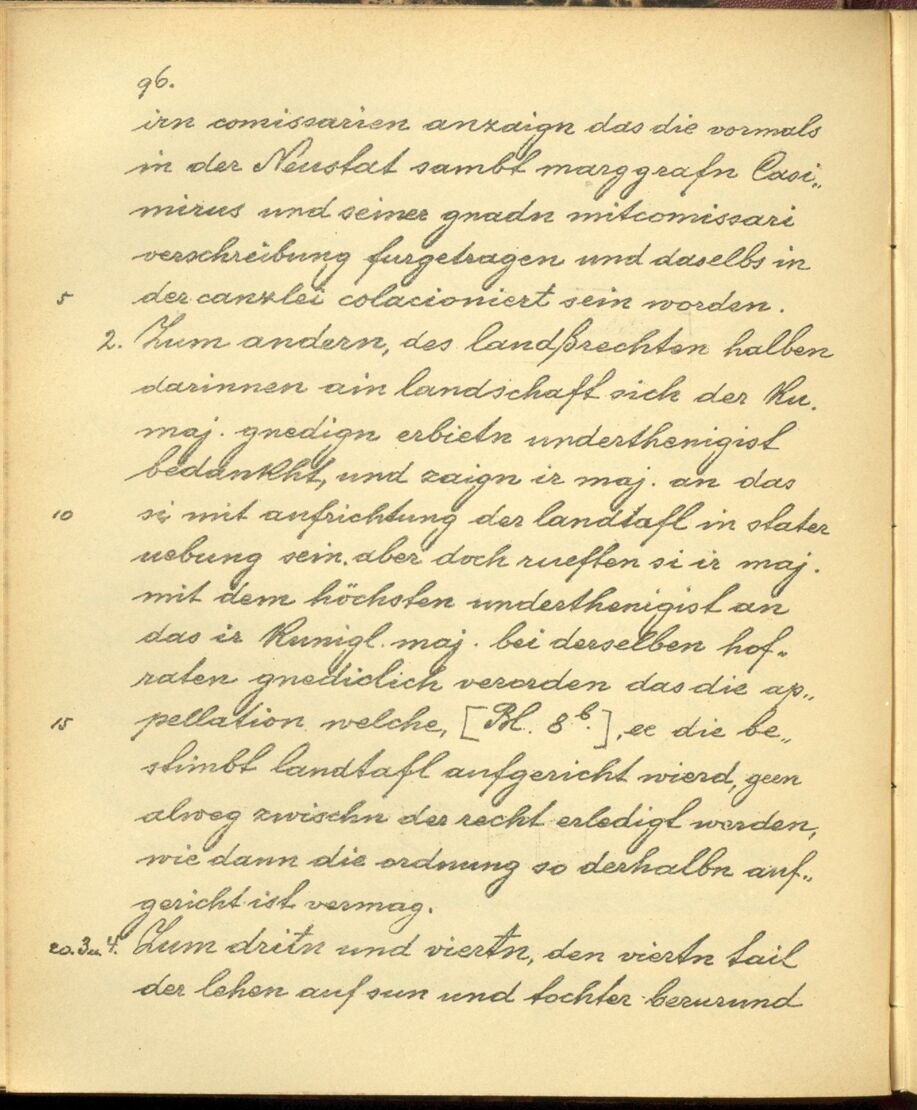 96.
irn comissarien anzaign das die vormals
in der Neustat sambt marggrafn Casi„
mirus und seiner gnadn mitcomissari
verschreibung furgetragen und daselbs in
5 der canzlei colacioniert sein worden.
2. Zum andern, des landßrechten halben
darinnen ain landschaft sich der Ku.
maj. gnedign erbietn underthenigist
bedankht, und zaign ir maj. an das
10 si mit aufrichtung der landtafl in stater
uebung sein. aber doch rueften si ir maj.
mit dem höchsten underthenigist an
das ir Kunigl. maj. bei derselben hof„
raten gnediclich verorden das die ap„
15 pellation welche, [Bl. 8b.], ee die be„
stimbt landtafl aufgericht wierd, geen
alweg zwischn der recht erledigt werden,
wie dann die ordnung so derhalbn auf„
gericht ist vermag.
20. 3 u 4. Zum dritn und viertn, den viertn tail
der lehen auf sun und tochter berurund